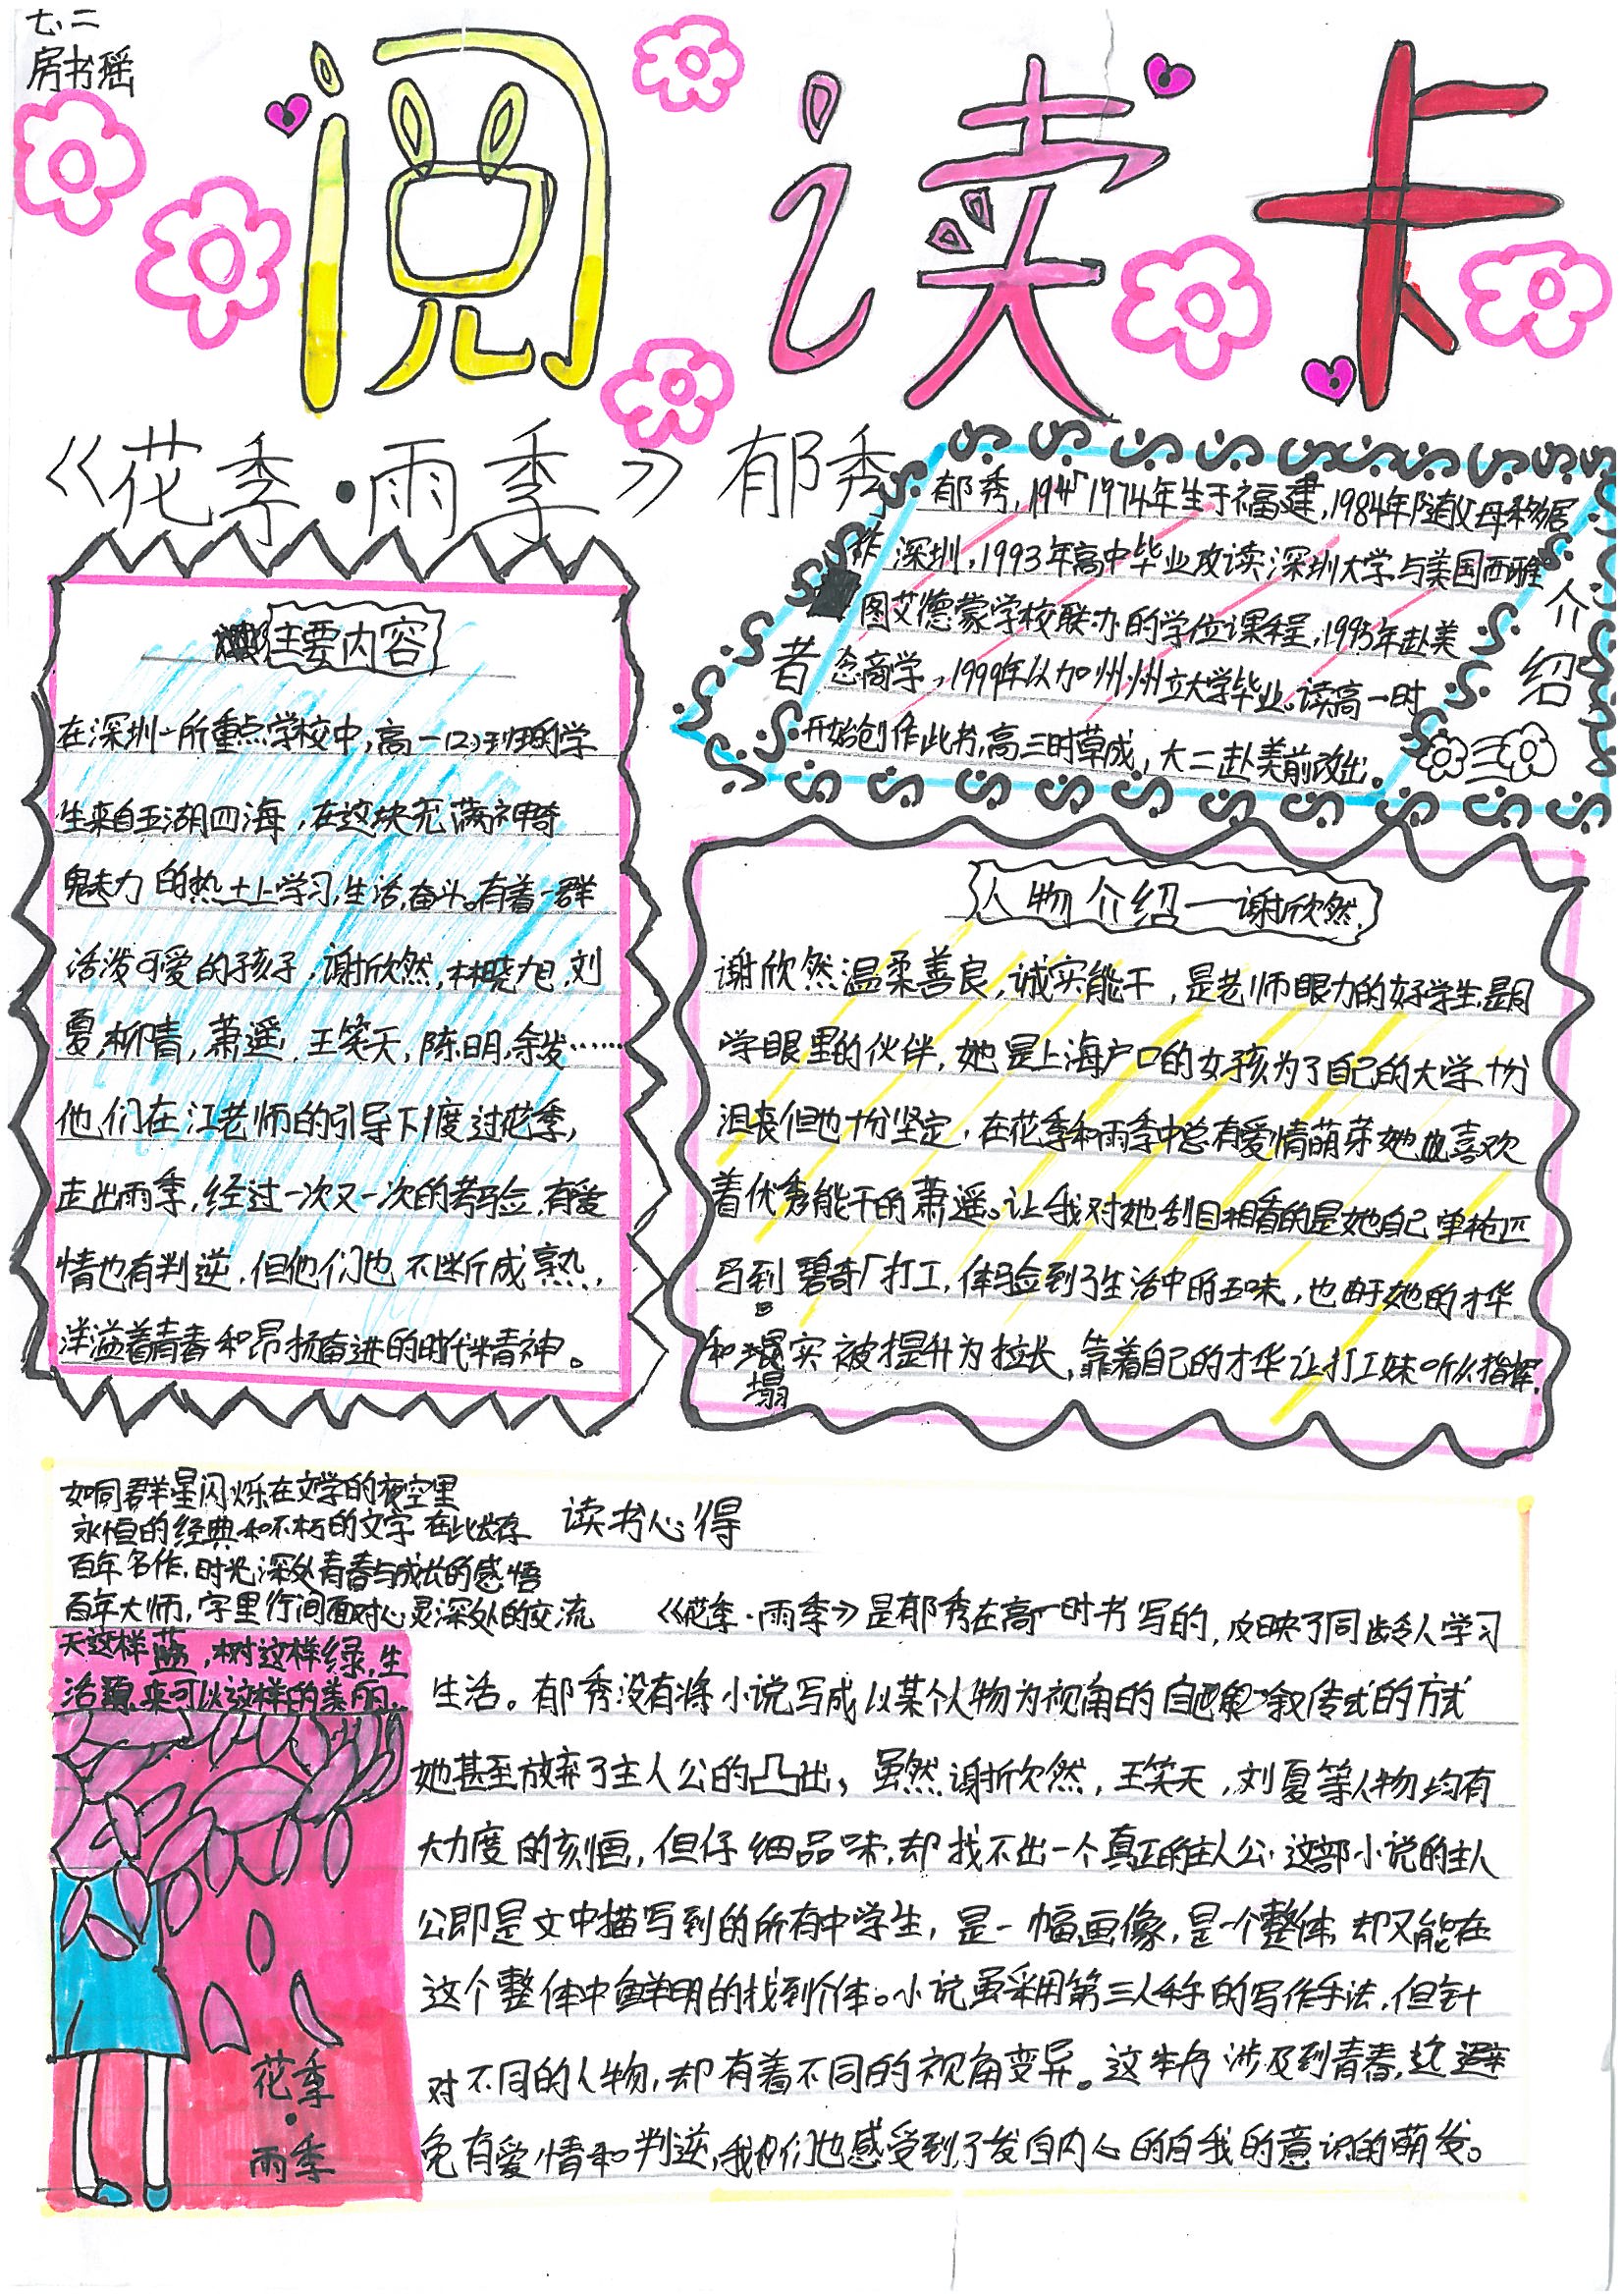 七、二
房书瑶
阅读卡
《花季·雨季》郁秀
作者介绍
郁秀,1974年生于福建,1984年随父母移居
深圳,1993年高中毕业攻读深圳大学与美国西雅
图艾德蒙学校联办的学位课程,1995年赴美
念商学,1999年从加州州立大学毕业。读高一时
开始创作此书,高三时草成,大二赴美前改出。
主要内容
在深圳一所重点学校中,高一(2)班的学
生来自五湖四海,在这块充满神奇
魅力的热土上学习,生活,奋斗。有着一群
活泼可爱的孩子,谢欣然,林晓旭,刘
夏,柳青,萧遥,王笑天,陈明,余发……
他们在江老师的引导下度过花季,
走出雨季,经过一次又一次的考验,有爱
情也有判逆,但他们也不断成熟,
洋溢着青春和昂扬奋进的时代精神。
人物介绍—谢欣然
谢欣然温柔善良,诚实能干,是老师眼力的好学生,是同
学眼里的伙伴,她是上海户口的女孩为了自己的大学十分
沮丧但也十分坚定,在花季和雨季中总有爱情萌芽她也喜欢
着优秀能干的萧遥。让我对她刮目相看的是她自己单枪匹
马到碧奇厂打工,体验到了生活中的五味,也由于她的才华
和塌实被提升为拉长,靠着自己的才华让打工妹听从指挥,
如同群星闪烁在文学的夜空里
永恒的经典和不朽的文字在此长存
百年名作,时光深处青春与成长的感悟
百年大师,字里行间面对心灵深处的交流
天这样蓝,树这样绿,生
活原来可以这样的美丽。
读书心得
《花季·雨季》是郁秀在高一时书写的,反映了同龄人学习
生活。郁秀没有将小说写成以某个人物为视角的自叙传式的方式
她甚至放弃了主人公的凸出,虽然谢欣然,王笑天,刘夏等人物均有
大力度的刻画,但仔细品味,却找不出一个真正的主人公.这部小说的主人
公即是文中描写到的所有中学生,是一幅画像,是一个整体,却又能在
这个整体中鲜明的找到个体。小说虽采用第三人称的写作手法,但针
对不同的人物,却有着不同的视角变异。这本书涉及到青春,避
免有爱情和判逆,我们也感受到了发自内心的自我的意识的萌发。
花季
·
雨季